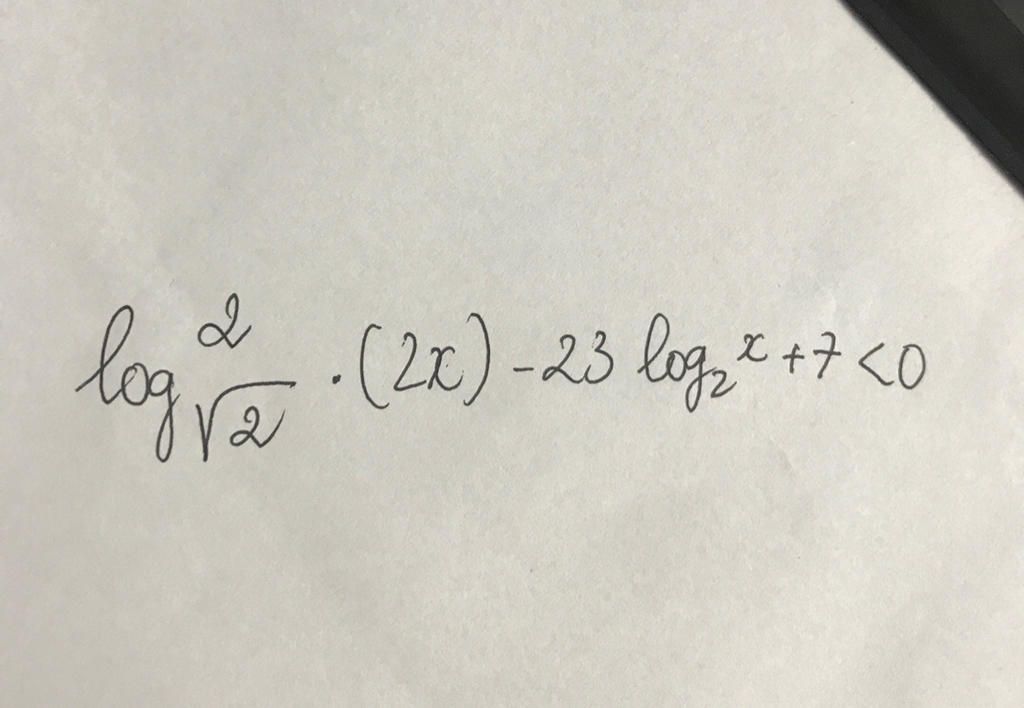 log²_√2 · (2x) - 23 log₂ x + 7 < 0